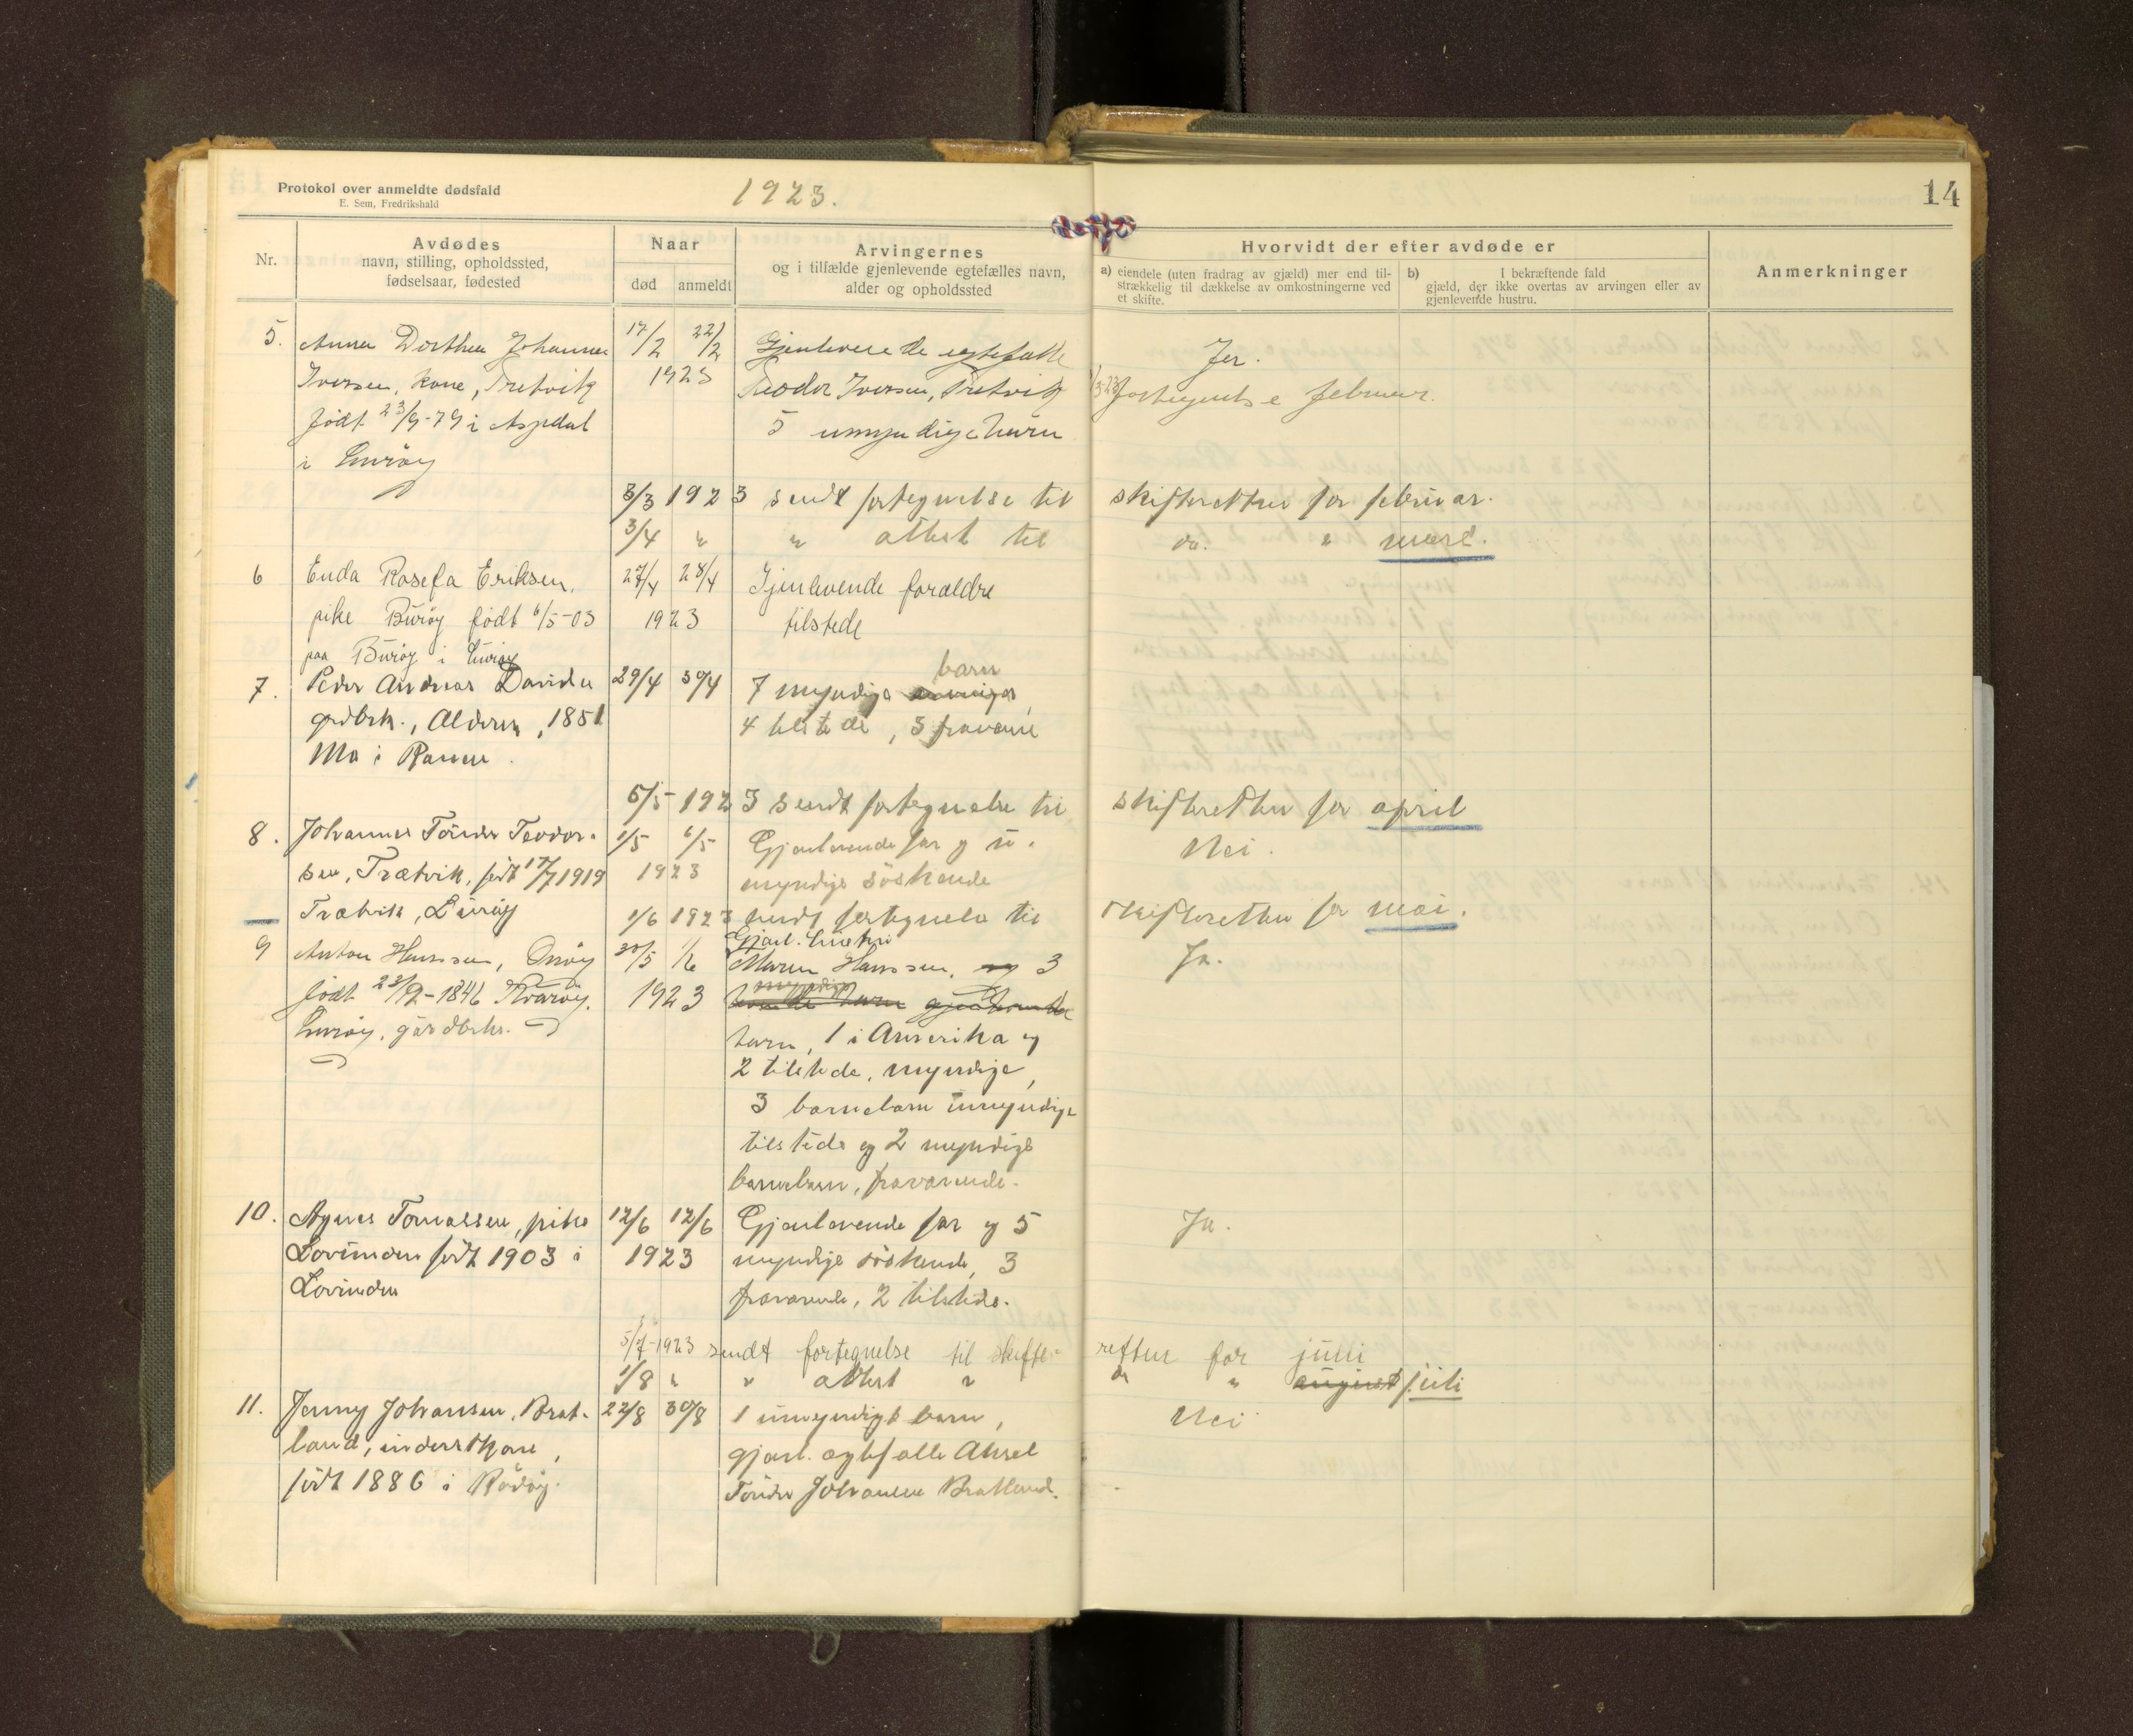 Protokol over anmeldte dødsfald
E. Sem, Fredrikshald
1923.
14
Nr.
Avdødes
navn, stilling, opholdssted,
fødselsaar, fødested
Naar
død anmeldt
Arvingernes
og i tilfælde gjenlevende egtefælles navn,
alder og opholdssted
Hvorvidt der efter avdøde er
a) eiendele (uten fradrag av gjæld) mer end til-
strækkelig til dækkelse av omkostningerne ved
et skifte.
b) I bekræftende fald
gjæld, der ikke overtas av arvingen eller av
gjenlevende hustru.
Anmerkninger
5. Anna Dorthea Johanna 17/2 22/2 Gjenlevende egtefælle Ja.
Iversen, kone, Tretvik 1923 Teodor Iversen, Tretvik Fortegnelse februar.
født 23/9-79 i Aspdal 5 umyndige barn
i Lurøy
3/3 1923 sendt fortegnelse til skifteretten for februar.
3/4 " " attest til do. " mars.
6 Enda Rosefa Eriksen, 27/4 28/4 Gjenlevende forældre
pike Burøy født 6/5-03 1923 tilstede
paa Burøy i Lurøy
7. Peder Andreas Davidsen 29/4 30/4 7 myndige barn
grdbrk., Alderen, 1851 4 tilstede, 3 fraværende
Mo i Ranen.
5/5-1923 sendt fortegnelse til skifteretten for april
8. Johannes Tønder Teodor- 1/5 6/5 Gjenlevende far og u. Nei.
sen, Trætvik, født 17/7 1919 1923 myndige søskende
Trætvik, Lurøy 1/6 1923 sendt fortegnelse til skifteretten for mai.
9 Anton Hanssen, Onøy 30/5 1/6 Gjenl. hustru Ja.
Maren Hanssen, og 3
født 23/9-1846 Kvarøy, 1923 myndige
Lurøy, gårdbrkr. barn, 1 i Amerika og
2 tilstede, myndige,
3 barnebarn umyndige
tilstede og 2 myndige
barnebarn, fraværende.
10. Agnes Tomassen, pike 12/6 12/6 Gjenlevende far og 5 Ja.
Lovunden født 1903 i 1923 myndige søskende, 3
Lovunden fraværende, 2 tilstede.
5/7-1923 sendt fortegnelse til skifte- retten for julli
1/8 " " attest " do " august juli
11. Jenny Johansen, Brat- 22/8 30/8 1 umyndigt barn, Nei
land, inderstkone, gjenl. egtefælle Aksel
født 1886 i Rødøy. Tønder Johansen Bratland.